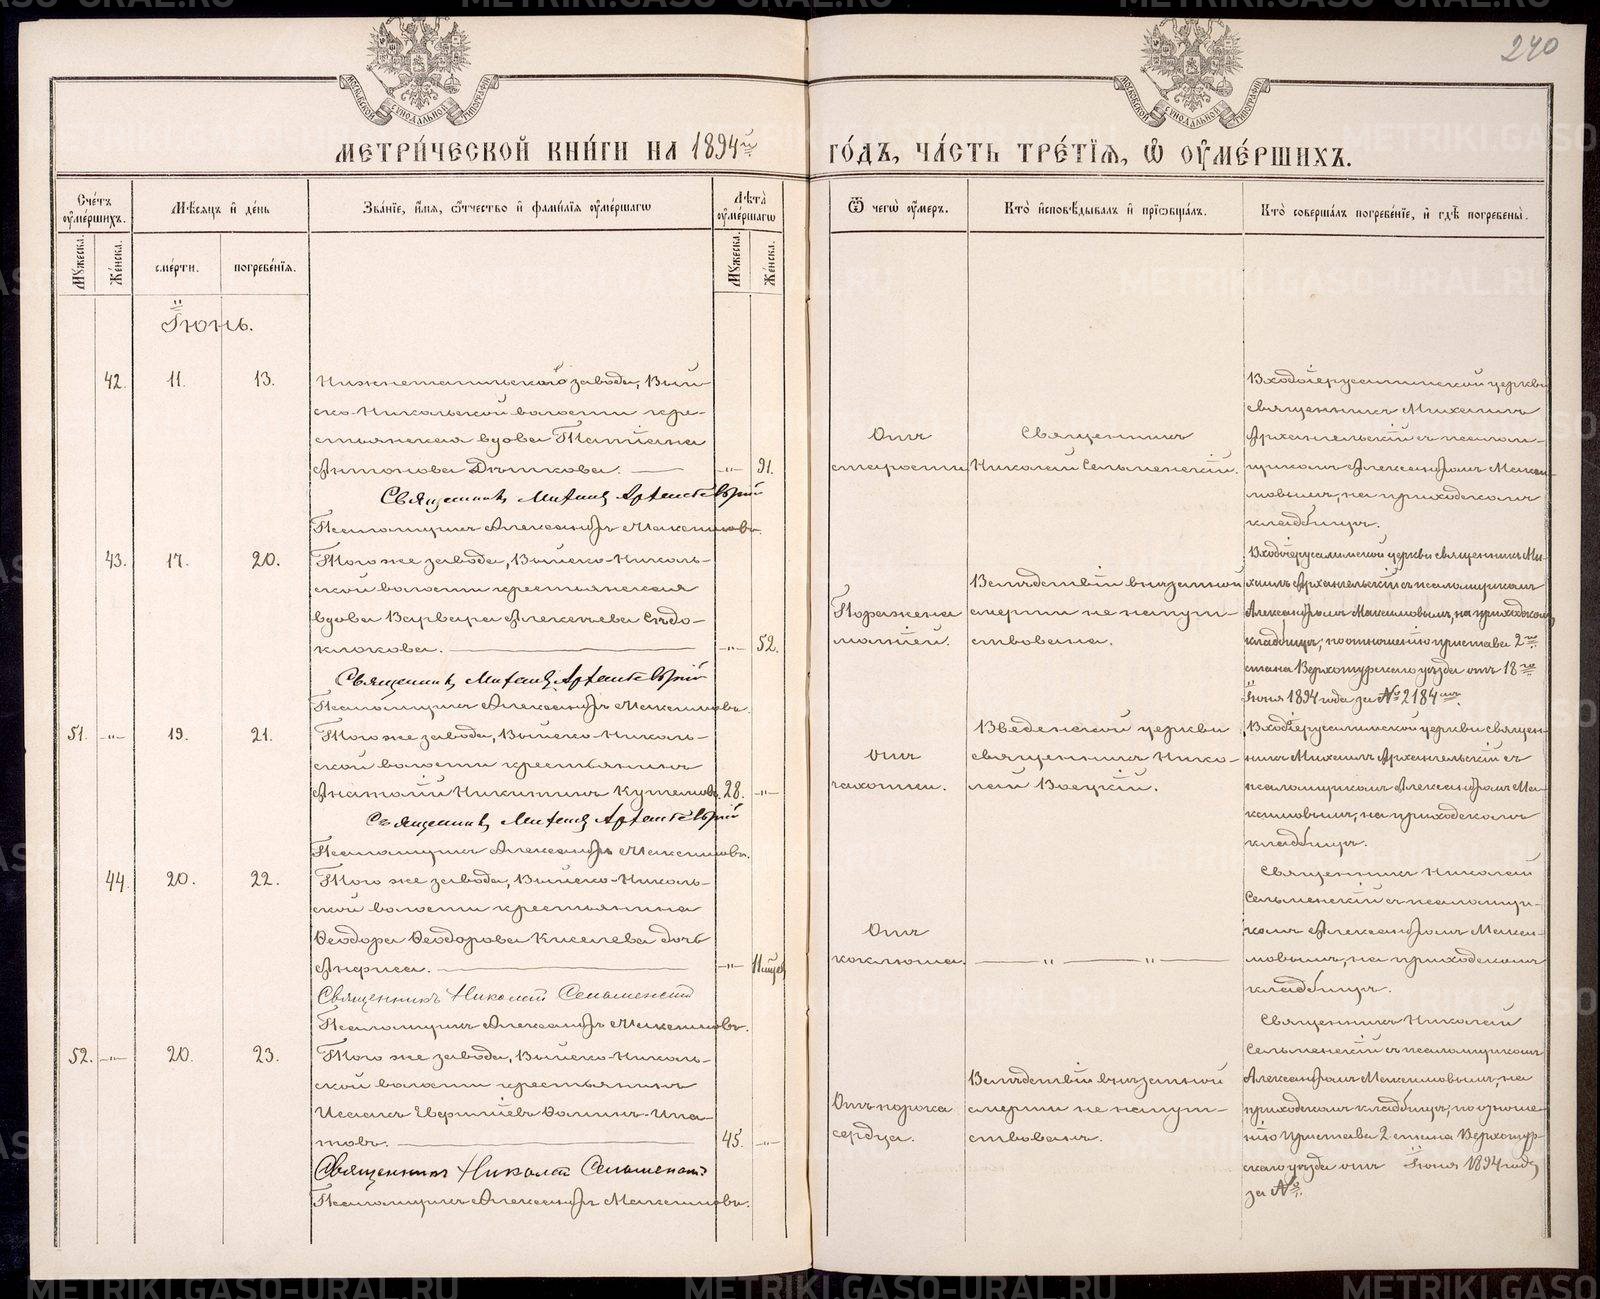 240
МОСКОВСКОЙ СѴНОДАЛЬНОЙ ТИПОГРАФІИ
МОСКОВСКОЙ СѴНОДАЛЬНОЙ ТИПОГРАФІИ
МЕТРИ́ЧЕСКОЙ КНИ́ГИ НА 1894й
ГО́ДЪ, ЧА́СТЬ ТРЕ́ТІЯ, Ѽ ОУ҆МЕ́РШИХЪ.
Сче́тъ оу҆ме́ршихъ.
Мѣ́сяцъ и҆ де́нь
Зва́нїе, и҆́мя, ѻ҆́тчество и҆ фами́лїя оу҆ме́ршагѡ
Лѣта̀ оу҆ме́ршагѡ
Ѿ чегѡ̀ оу҆́меръ.
Кто̀ и҆сповѣ́дывалъ и҆ прїѡбща́лъ.
Кто̀ соверша́лъ погребе́нїе, и҆ гдѣ̀ погребены̀.
Мꙋ́жеска.
Же́нска.
сме́рти.
погребе́нїя.
Мꙋ́жеска.
Же́нска.
Іюнь.
42.
11.
13.
Нижнетагильскаго завода, Вый-
ско-Никольской волости кре-
стьянская вдова Татіана
Антонова Дѣткова.
-"-
91.
Священникъ Михаилъ Архангельскій
Псаломщикъ Александръ Максимовъ.
Отъ
старости.
Священникъ
Николай Сельменскій.
Входоіерусалимской церкви
священникъ Михаилъ
Архангельскій съ псалом-
щикомъ Александромъ Макси-
мовымъ, на приходскомъ
кладбищѣ.
43.
17.
20.
Того же завода, Выйско-Николь-
ской волости крестьянская
вдова Варвара Алексѣева Сѣдо-
клокова.
-"-
52.
Священникъ Михаилъ Архангельскій
Псаломщикъ Александръ Максимовъ.
Поражена
молніей.
Вслѣдствіи внѣзапной
смерти не напут-
ствована.
Входоіерусалимской церкви священникъ Ми-
хаилъ Архангельскій съ псаломщикомъ
Александромъ Максимовымъ, на приходском
кладбищѣ, по отношенію пристава 2го
стана Верхотурскаго уѣзда отъ 18го
Іюня 1894 года за № 2184мъ.
51.
-"-
19.
21.
Того же завода, Выйско-Николь-
ской волости крестьянинъ
Анатолій Никитинъ Кутеповъ.
28.
-"-
Священникъ Михаилъ Архангельскій
Псаломщикъ Александръ Максимовъ.
Отъ
чахотки.
Введенской церкви
священникъ Нико-
лай Воецкій.
Входоіерусалимской церкви священ-
никъ Михаилъ Архангельскій съ
псаломщикомъ Александромъ Мак-
симовымъ, на приходскомъ
кладбищѣ.
44.
20.
22.
Того же завода, Выйско-Николь-
ской волости крестьянина
Ѳеодора Ѳеодорова Киселева дочь
Анфиса.
-"-
11 мѣсц
Священникъ Николай Сельменскій
Псаломщикъ Александръ Максимовъ.
Отъ
коклюша.
— " — " —
Священникъ Николай
Сельменскій съ псаломщи-
комъ Александромъ Макси-
мовымъ, на приходскомъ
кладбищѣ.
52.
-"-
20.
23.
Того же завода, Выйско-Николь-
ской волости крестьянинъ
Исаакъ Евфиміевъ Ипа-
товъ.
45.
-"-
Священникъ Николай Сельменскій
Псаломщикъ Александръ Максимовъ.
Отъ порока
сердца.
Вслѣдствіи внѣзапной
смерти не напут-
ствованъ.
Священникъ Николай
Сельменскій съ псаломщикомъ
Александромъ Максимовымъ, на
приходскомъ кладбищѣ, по отноше-
нію Пристава 2 стана Верхотур-
скаго уѣзда отъ Іюня 1894 года,
за №.
METRIKI.GASO-URAL.RU